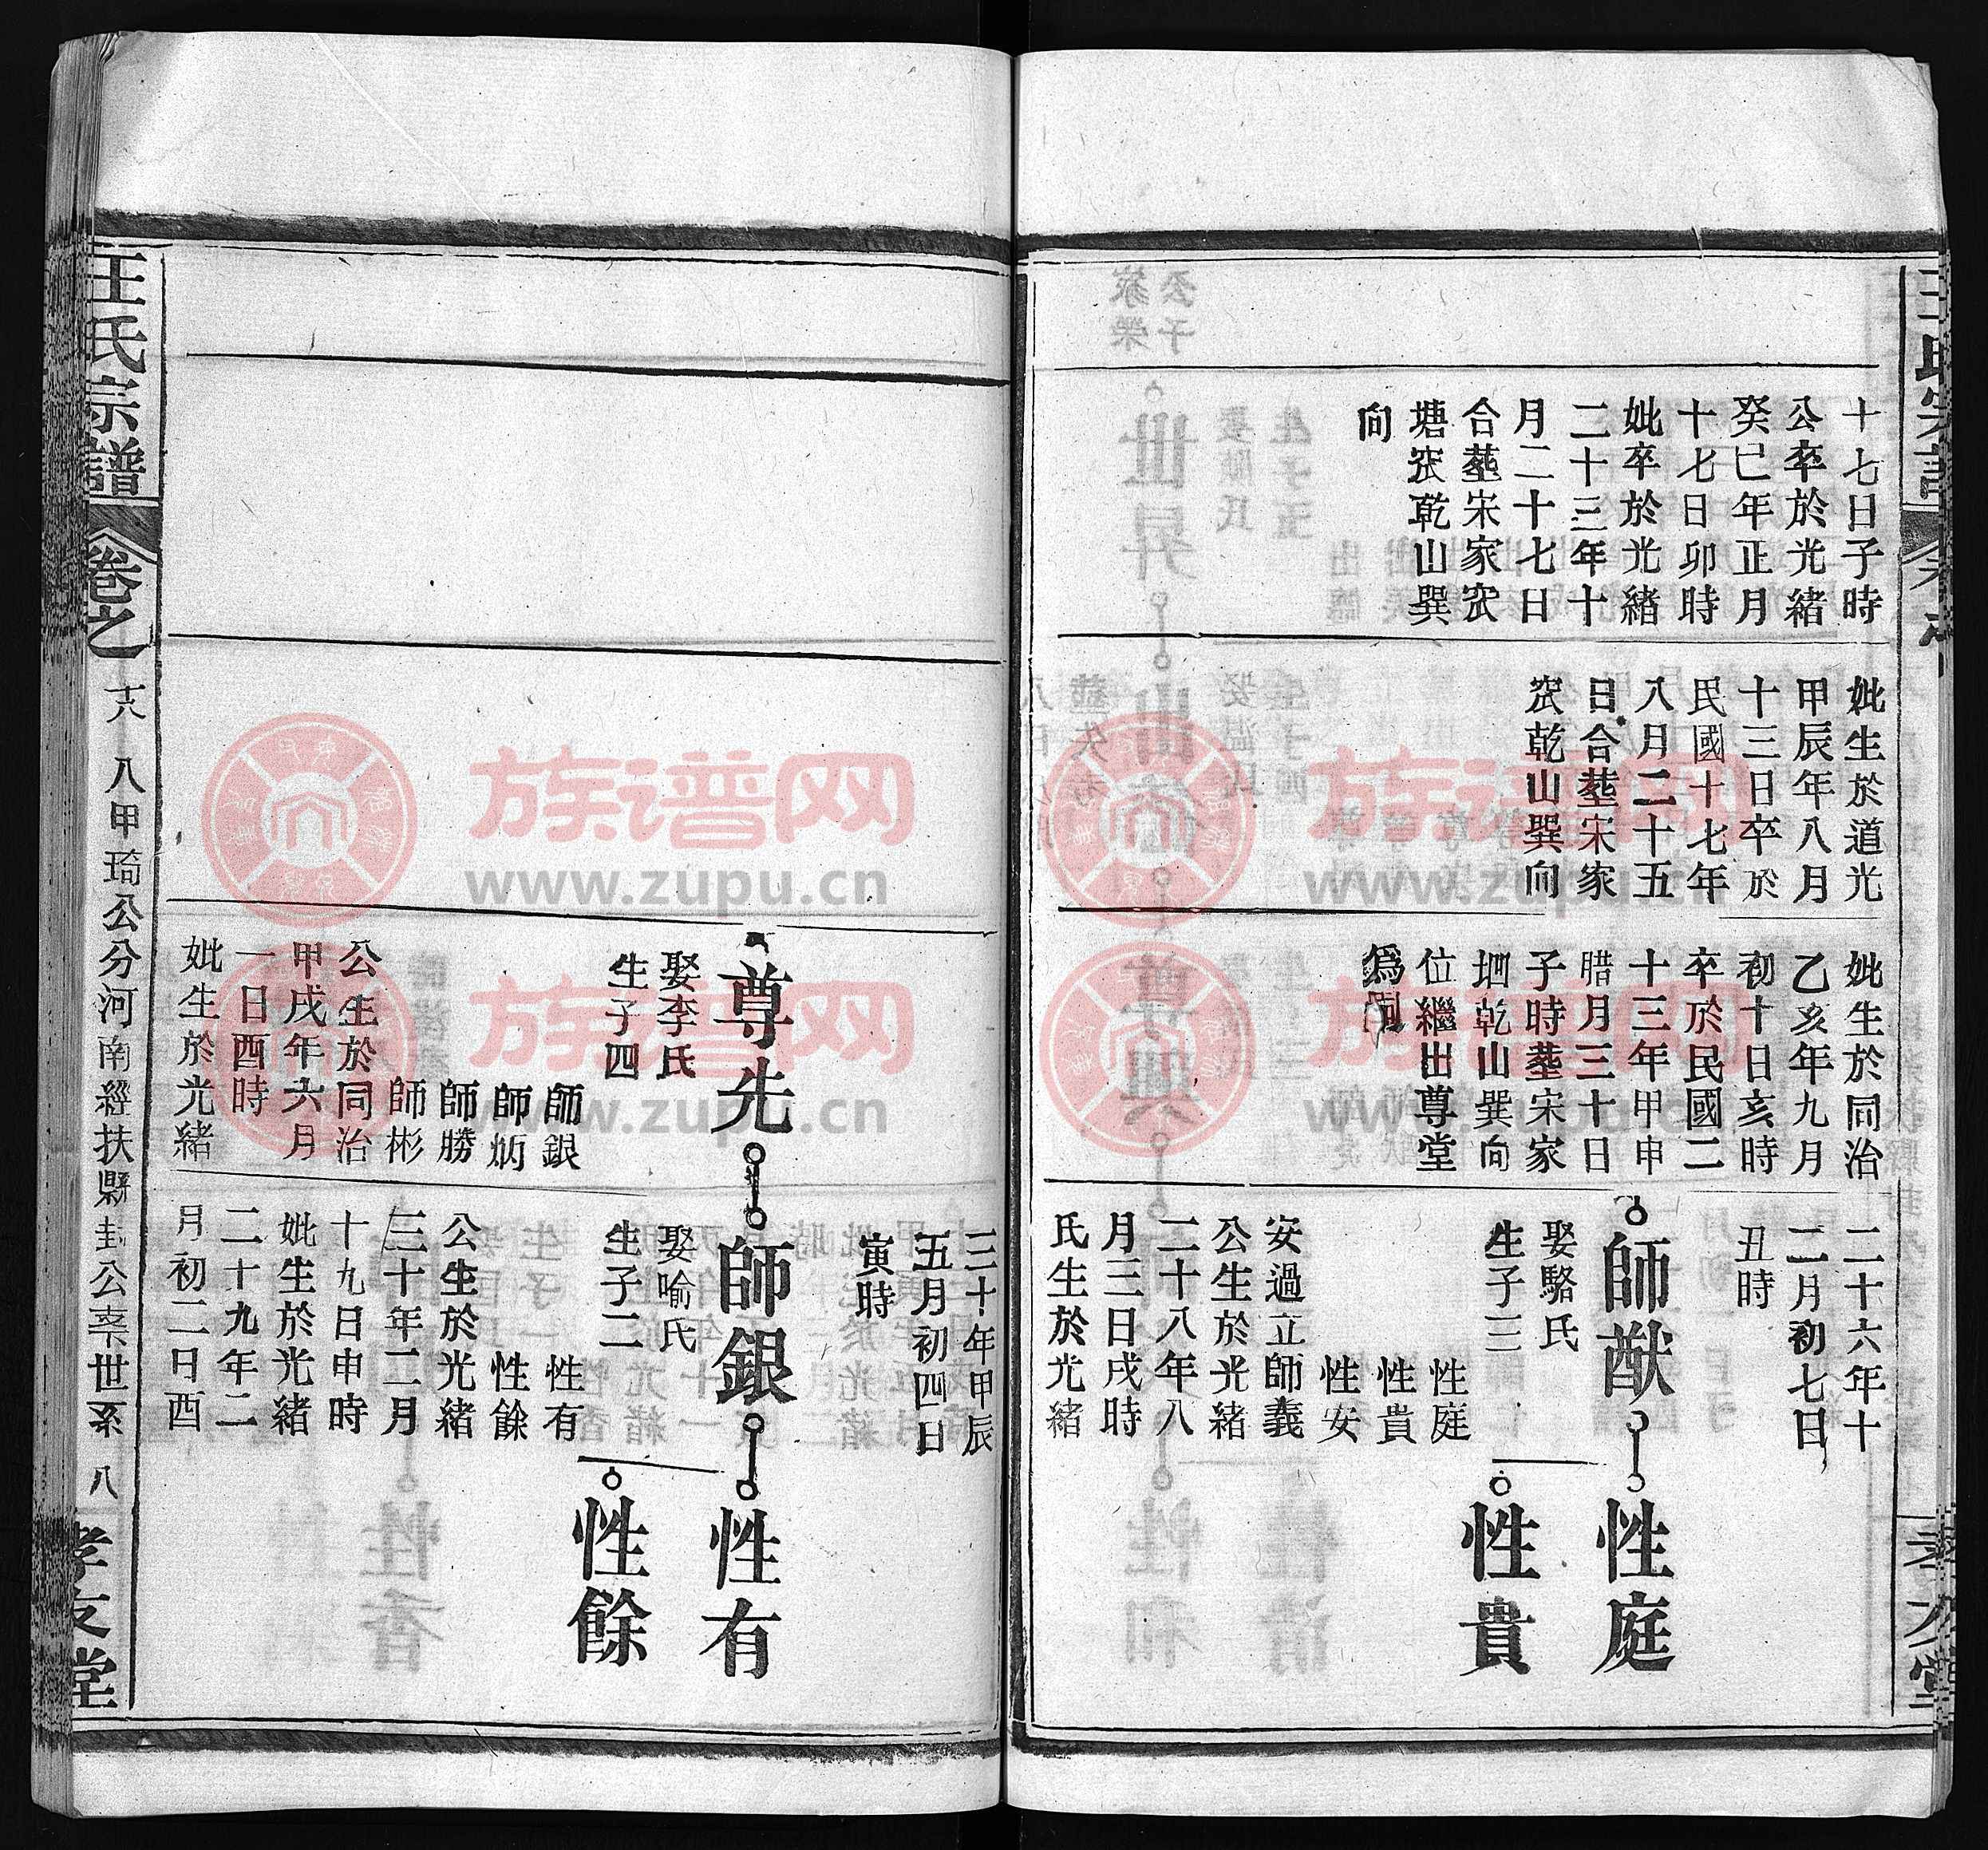 十七日子時
公卒於光緒
癸巳年正月
十七日卯時
妣卒於光緒
二十三年十
月二十七日
合塟宋家㳄
塘㳄乾山巽
向
妣生於道光
甲辰年八月
十三日卒於
民國十七年
八月二十五
日合塟宋家
㳄乾山巽向
妣生於同治
乙亥年九月
初十日亥時
卒於民國二
十三年甲申
腊月三十日
子時塟宋家
乾山巽向
位繼出尊堂
爲嗣
二十六年十
二月初七日
丑時
師猷
娶駱氏
生子三
性庭
性貴
性安
安過立師義
公生於光緒
二十八年八
月三日戌時
氏生於光緒
性庭
性貴
三十年甲辰
五月初四日
寅時
尊光
娶李氏
生子四
師銀
師炳
師勝
師彬
公生於同治
甲戌年六月
一日酉時
妣生於光緒
師銀
娶喻氏
生子二
性有
性餘
公生於光緒
三十年二月
十九日申時
妣生於光緒
二十九年二
月初二日酉
性有
性餘
汪氏宗譜
卷之
十六
八甲琦公分河南經扶縣封公寨下世系
八
孝友堂
族谱网
www.zupu.cn
族谱网
www.zupu.cn
族谱网
www.zupu.cn
族谱网
www.zupu.cn